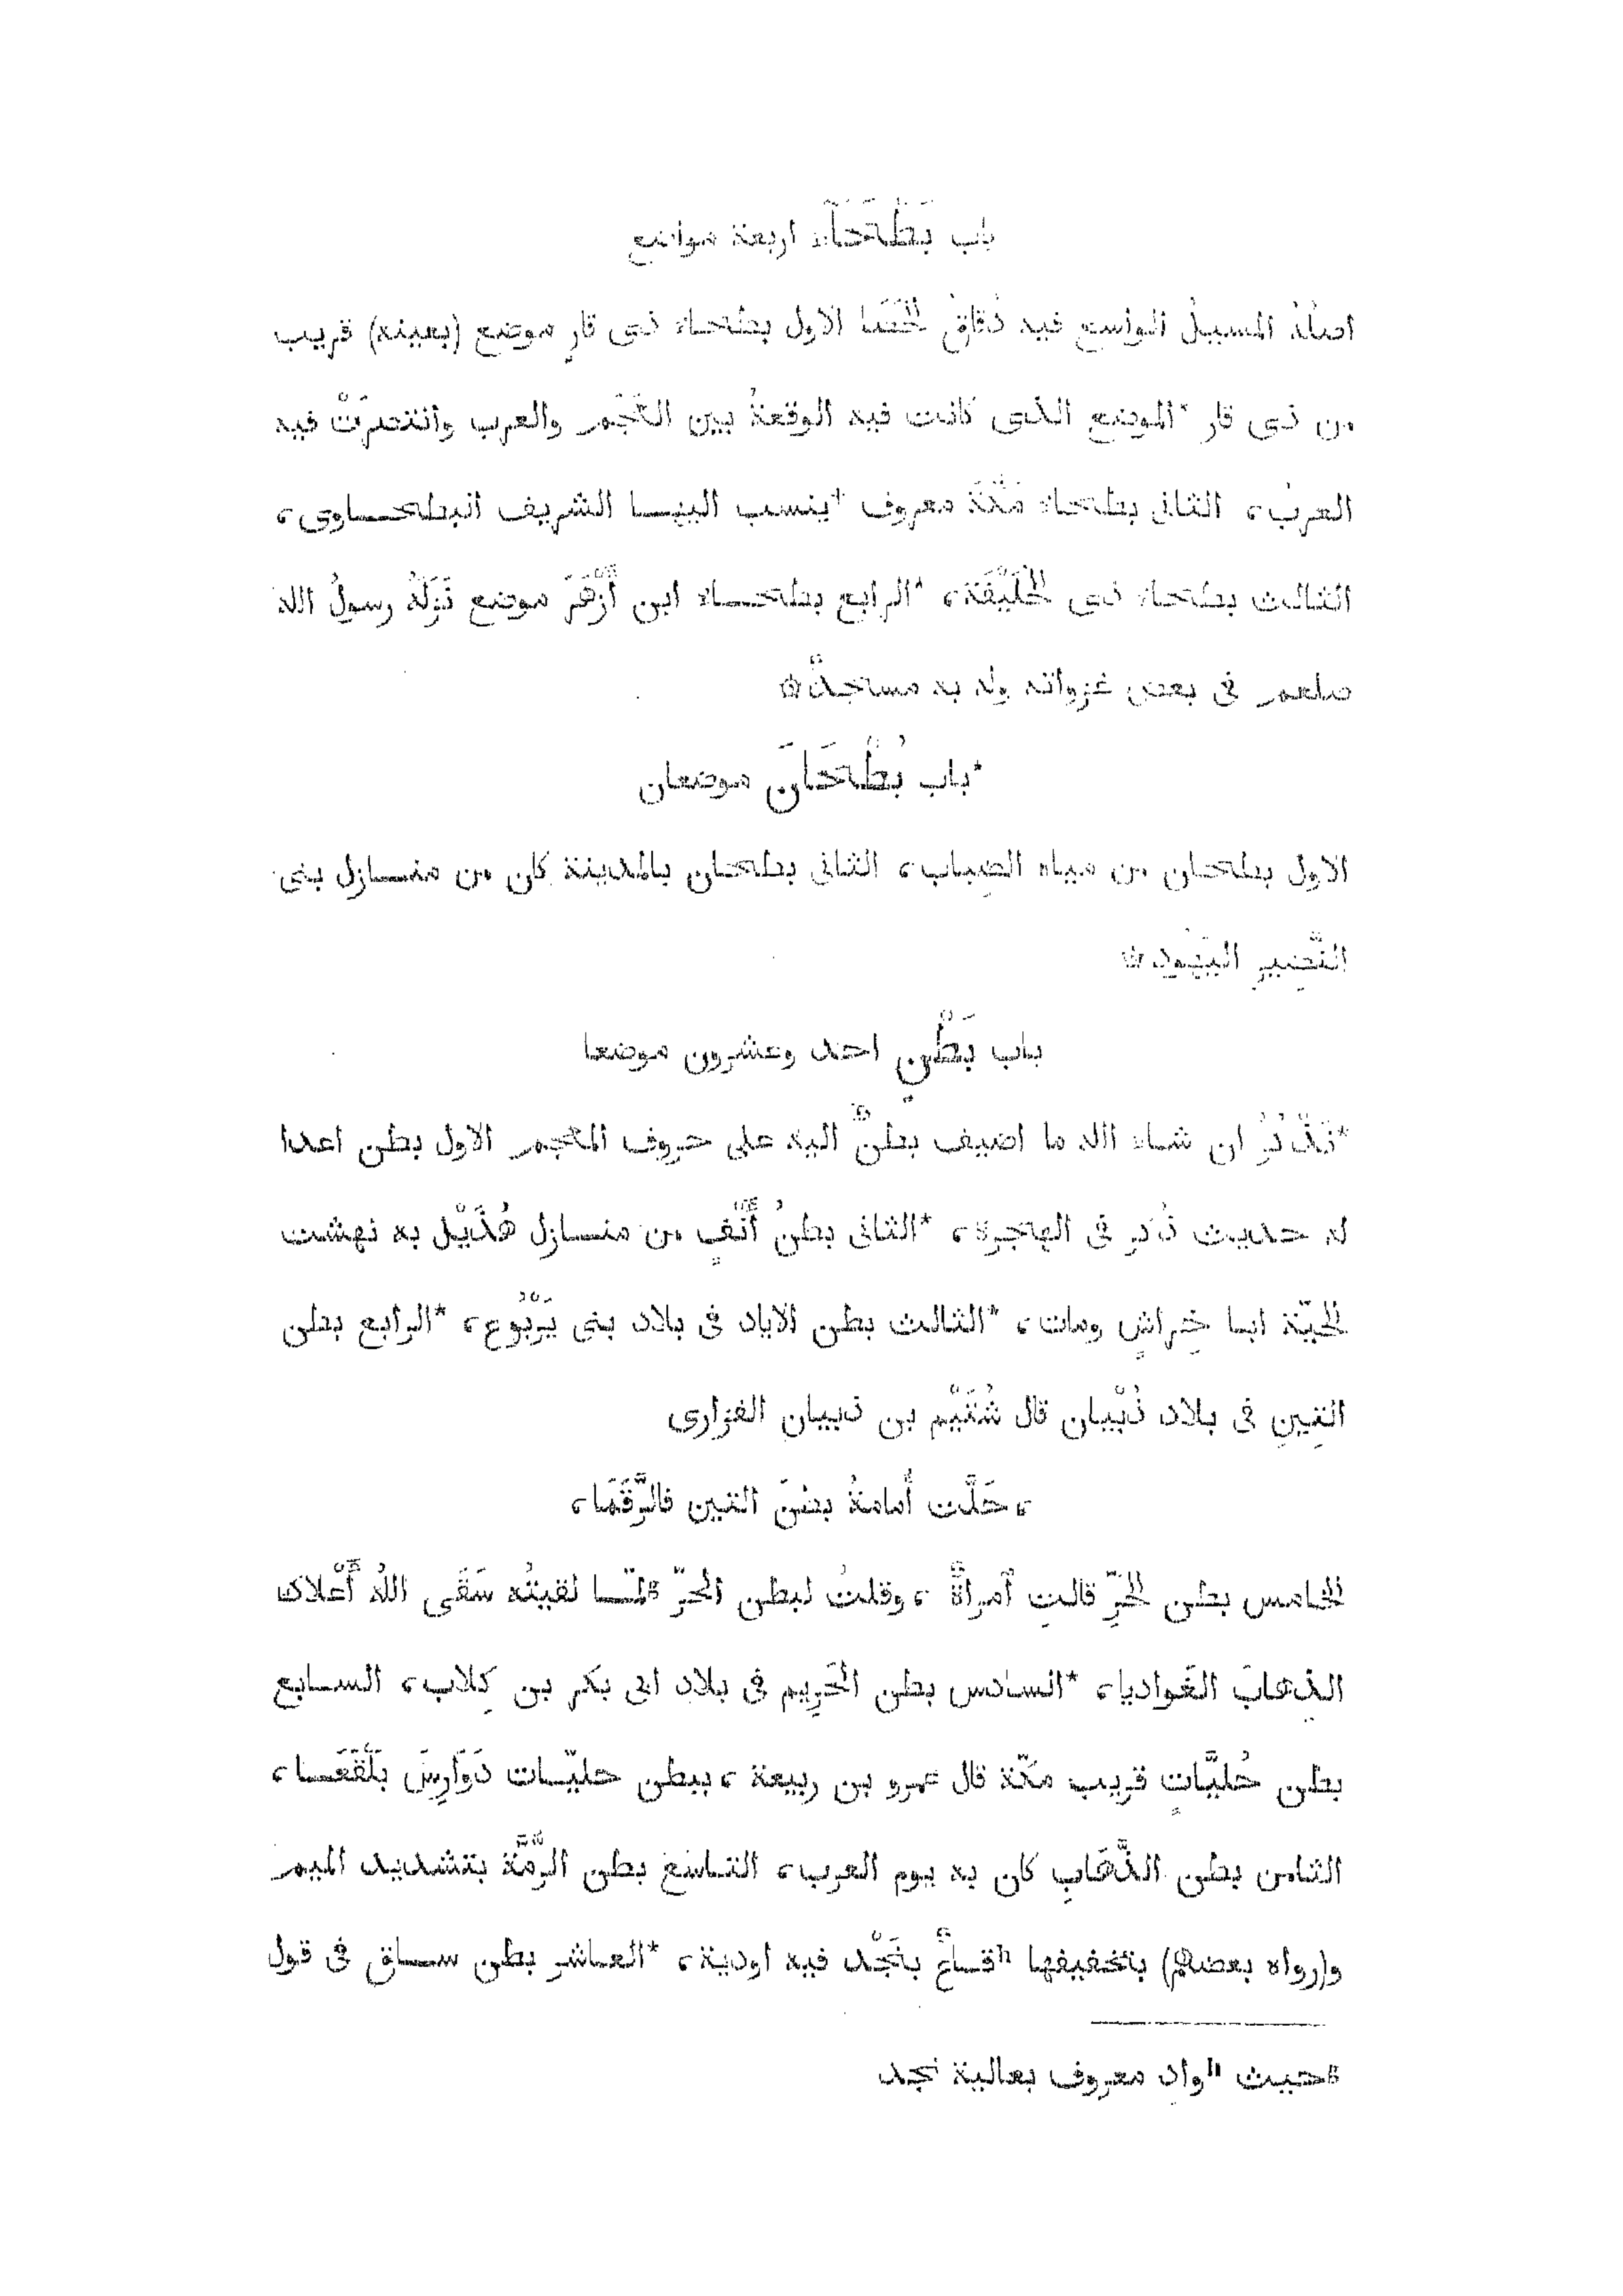 باب بَطْحَاء اربعة مواضع
اصلُهُ المسيلُ الواسع فيه دُقاقُ الحَصَا الاول بطحاء ذى قارٍ موضع (بعينه) قريب
من ذى قار *الموضع الذى كانت فيه الوقعةُ بين العَجَم والعرب وانتصرَتْ فيه
العربُ، الثانى بطحاء مَكّة معروف *ينسب اليها الشريف البطحاوى،
الثالث بطحاء ذى الحُلَيْفَة، *الرابع بطحاء ابن أَزْهَرَ موضع نَزَلَهُ رسولُ الله
صلعم فى بعض غزواته وله به مسجدٌ ۞
*باب بُطْحَانَ موضعان
الاول بطحان من مياه الضِباب، الثانى بطحان بالمدينة كان من منازل بنى
النَّضِيرِ اليَهود ۞
باب بَطْنٍ احد وعشرون موضعا
*نَذْكُرُ ان شاء الله ما اضيف بطنٌ اليه على حروف المعجم الاول بطن اعدا
له حديث ذُكر فى الهجرة، *الثانى بطنُ أَنْفٍ من منازل هُذَيْل به نهشت
الحَيّة ابا خِراشٍ ومات، *الثالث بطن الاياد فى بلاد بنى يَرْبُوع، *الرابع بطن
التِينِ فى بلاد ذُبْيان قال شُتَيْم بن ذبيان الفزارى
، حَلَّت أُمامةُ بطنَ التين فالرَّقَمَا،
الخامس بطن الحُرِّ قالتِ آمراةٌ ، وقلتُ لبطن الحرّ ¤لمّا لقيتُه سَقَى اللهُ أَعْلاك
الذِهابَ الغَواديا، *السادس بطن الحَرِيم فى بلاد ابى بكر بن كِلاب، السابع
بطن حُليَّاتٍ قريب مكّة قال عمرو بن ربيعة ، ببطن حليّات دَوَارِسَ بَلْقَعَا،
الثامن بطن الذُّهَابِ كان به يوم العرب، التاسع بطن الرُّمَّة بتشديد الميم
و(رواه بعضهم) بتخفيفها "قاعٌ بنَجْد فيه اودية، *العاشر بطن ساق فى قول
¤حيث "وادٍ معروف بعالية نجد